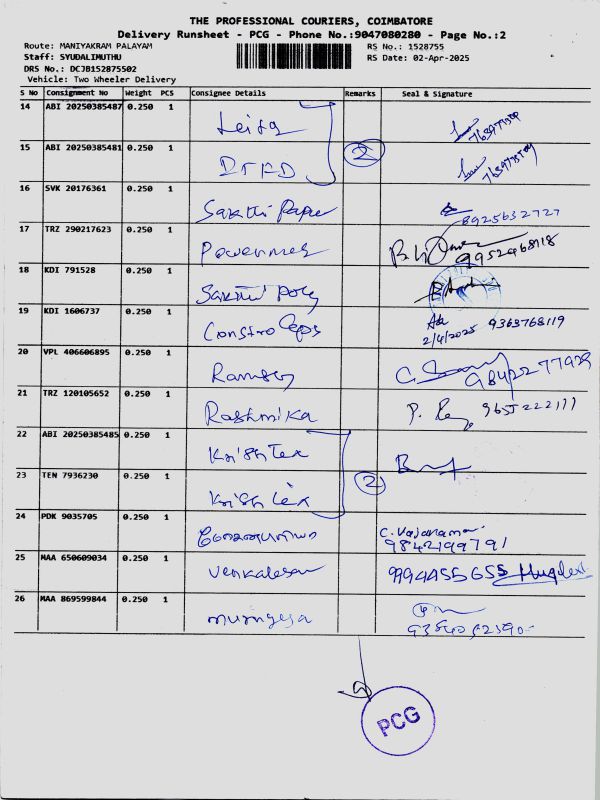 THE PROFESSIONAL COURIERS, COIMBATORE
Delivery Runsheet - PCG - Phone No.:9047080280 - Page No.:2
Route: MANIYAKRAM PALAYAM
RS No.: 1528755
Staff: SYUDALIMUTHU
RS Date: 02-Apr-2025
DRS No.: DCJB152875502
Vehicle: Two Wheeler Delivery
S No Consignment No Weight PCS Consignee Details Remarks Seal & Signature
14 ABI 20250385487 0.250 1
15 ABI 20250385481 0.250 1 2
16 SVK 20176361 0.250 1 Sakthi Paper 8925632727
17 TRZ 290217623 0.250 1 9952468118
18 KDI 791528 0.250 1 Sakthi Poly
19 KDI 1606737 0.250 1 Constro 2/4/2025 9363768119
20 VPL 406606895 0.250 1 Ramsey 9842277929
21 TRZ 120105652 0.250 1 Rashmika 9655222111
22 ABI 20250385485 0.250 1 Krish Tex
23 TEN 7936230 0.250 1 Krish Tex 2
24 PDK 9035705 0.250 1 9842199791
25 MAA 650609034 0.250 1 Venkatesan 9994455655
26 MAA 869599844 0.250 1 murugesa
PCG